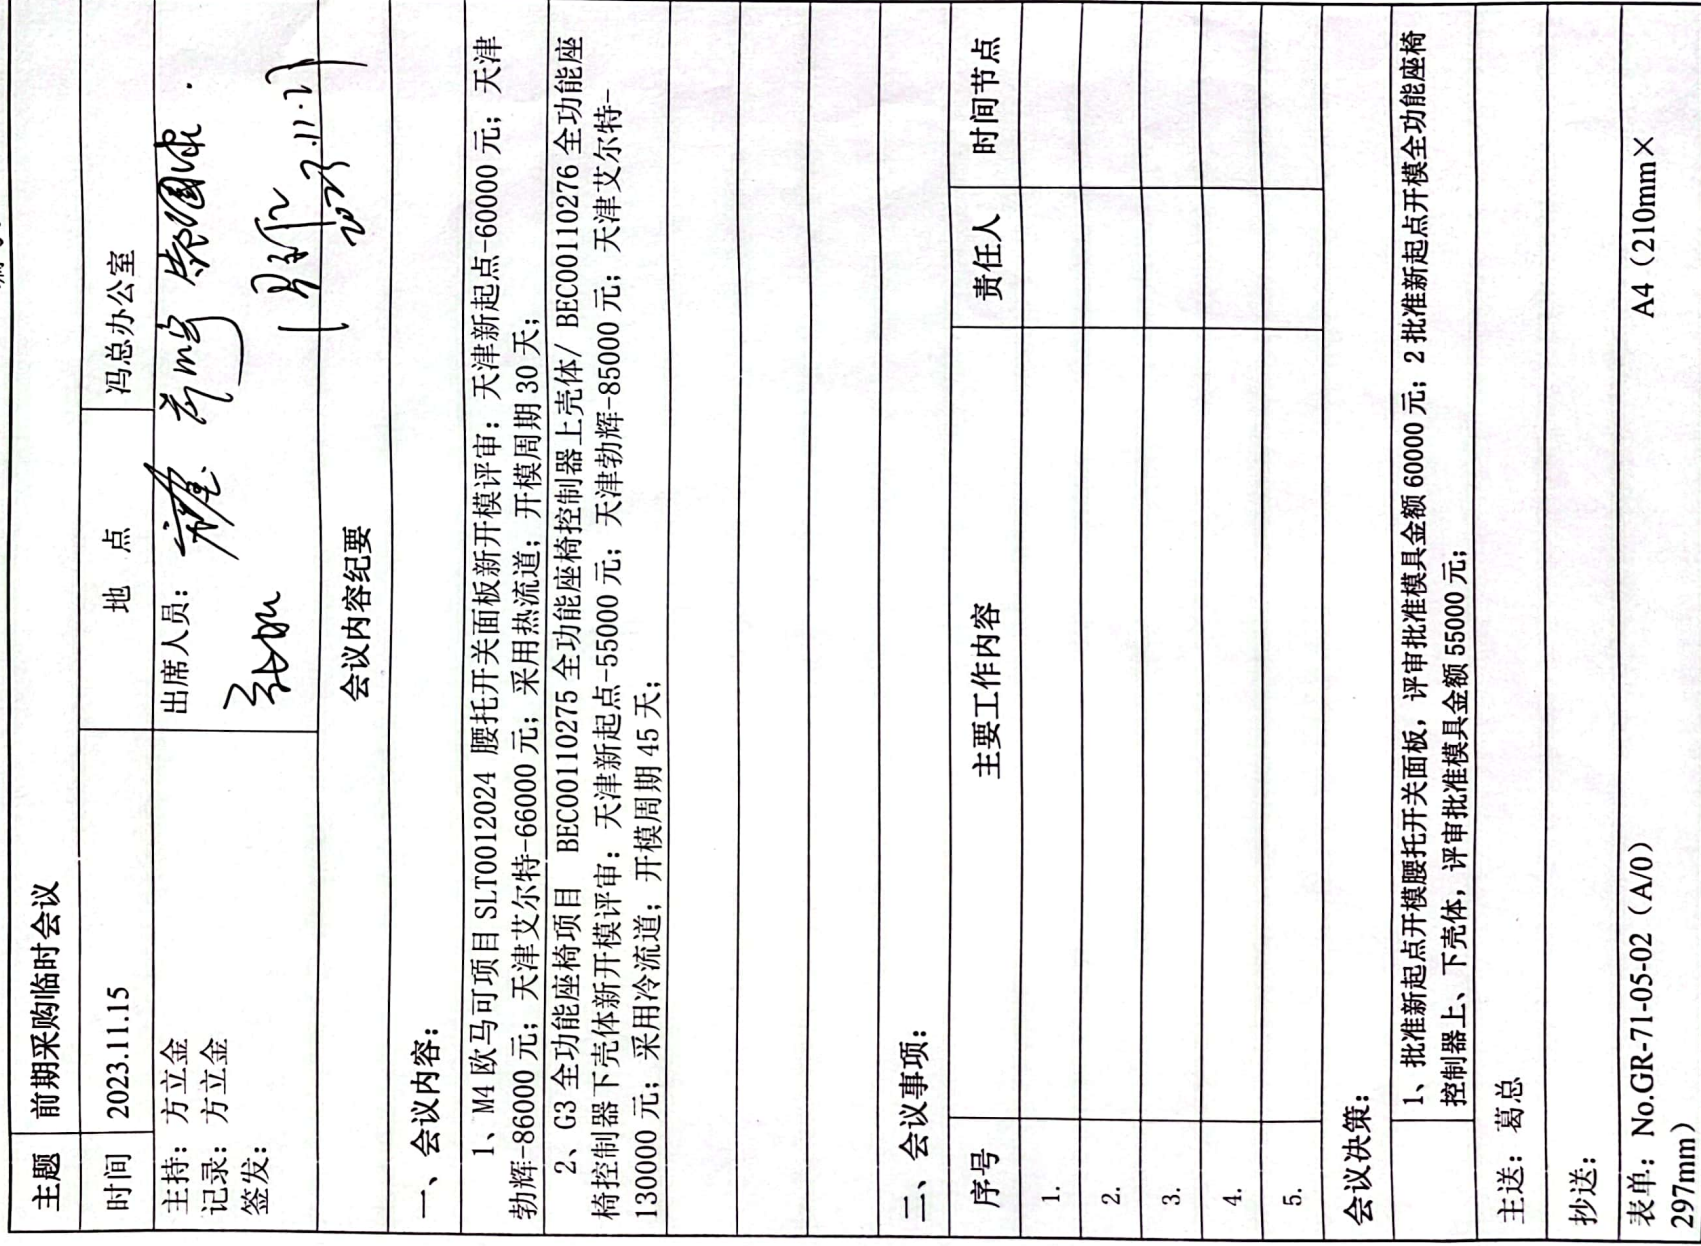 主题 前期采购临时会议
时间 2023.11.15 地 点 冯总办公室
主持：方立金 出席人员：
记录：方立金
签发：
2023.11.17
会议内容纪要
一、会议内容：
1、M4 欧马可项目 SLT0012024 腰托开关面板新开模评审：天津新起点-60000 元；天津
勃辉-86000 元；天津艾尔特-66000 元；采用热流道；开模周期 30 天；
2、G3 全功能座椅项目 BEC00110275 全功能座椅控制器上壳体/ BEC00110276 全功能座
椅控制器下壳体新开模评审：天津新起点-55000 元；天津勃辉-85000 元；天津艾尔特-
130000 元；采用冷流道；开模周期 45 天；
二、会议事项：
序号 主要工作内容 责任人 时间节点
1.
2.
3.
4.
5.
会议决策：
1、批准新起点开模腰托开关面板，评审批准模具金额 60000 元；2 批准新起点开模全功能座椅
控制器上、下壳体，评审批准模具金额 55000 元；
主送：葛总
抄送：
表单：No.GR-71-05-02（A/0） A4（210mm×
297mm）